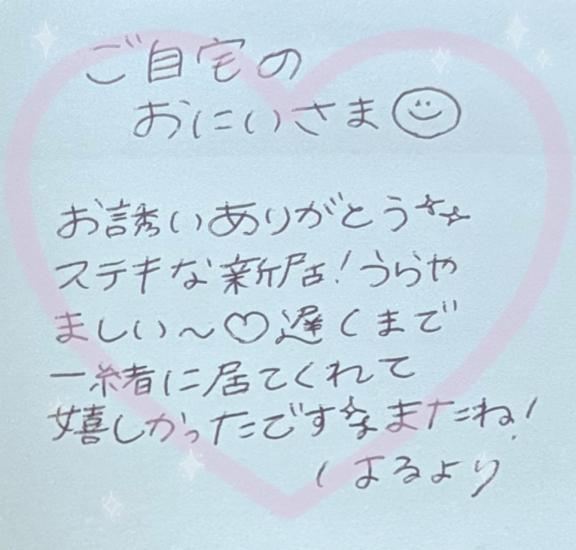 ご自宅の
おにいさま
お誘いありがとう
ステキな新居!うらや
ましい〜♡遅くまで
一緒に居てくれて
嬉しかったです☆またね!
はるより